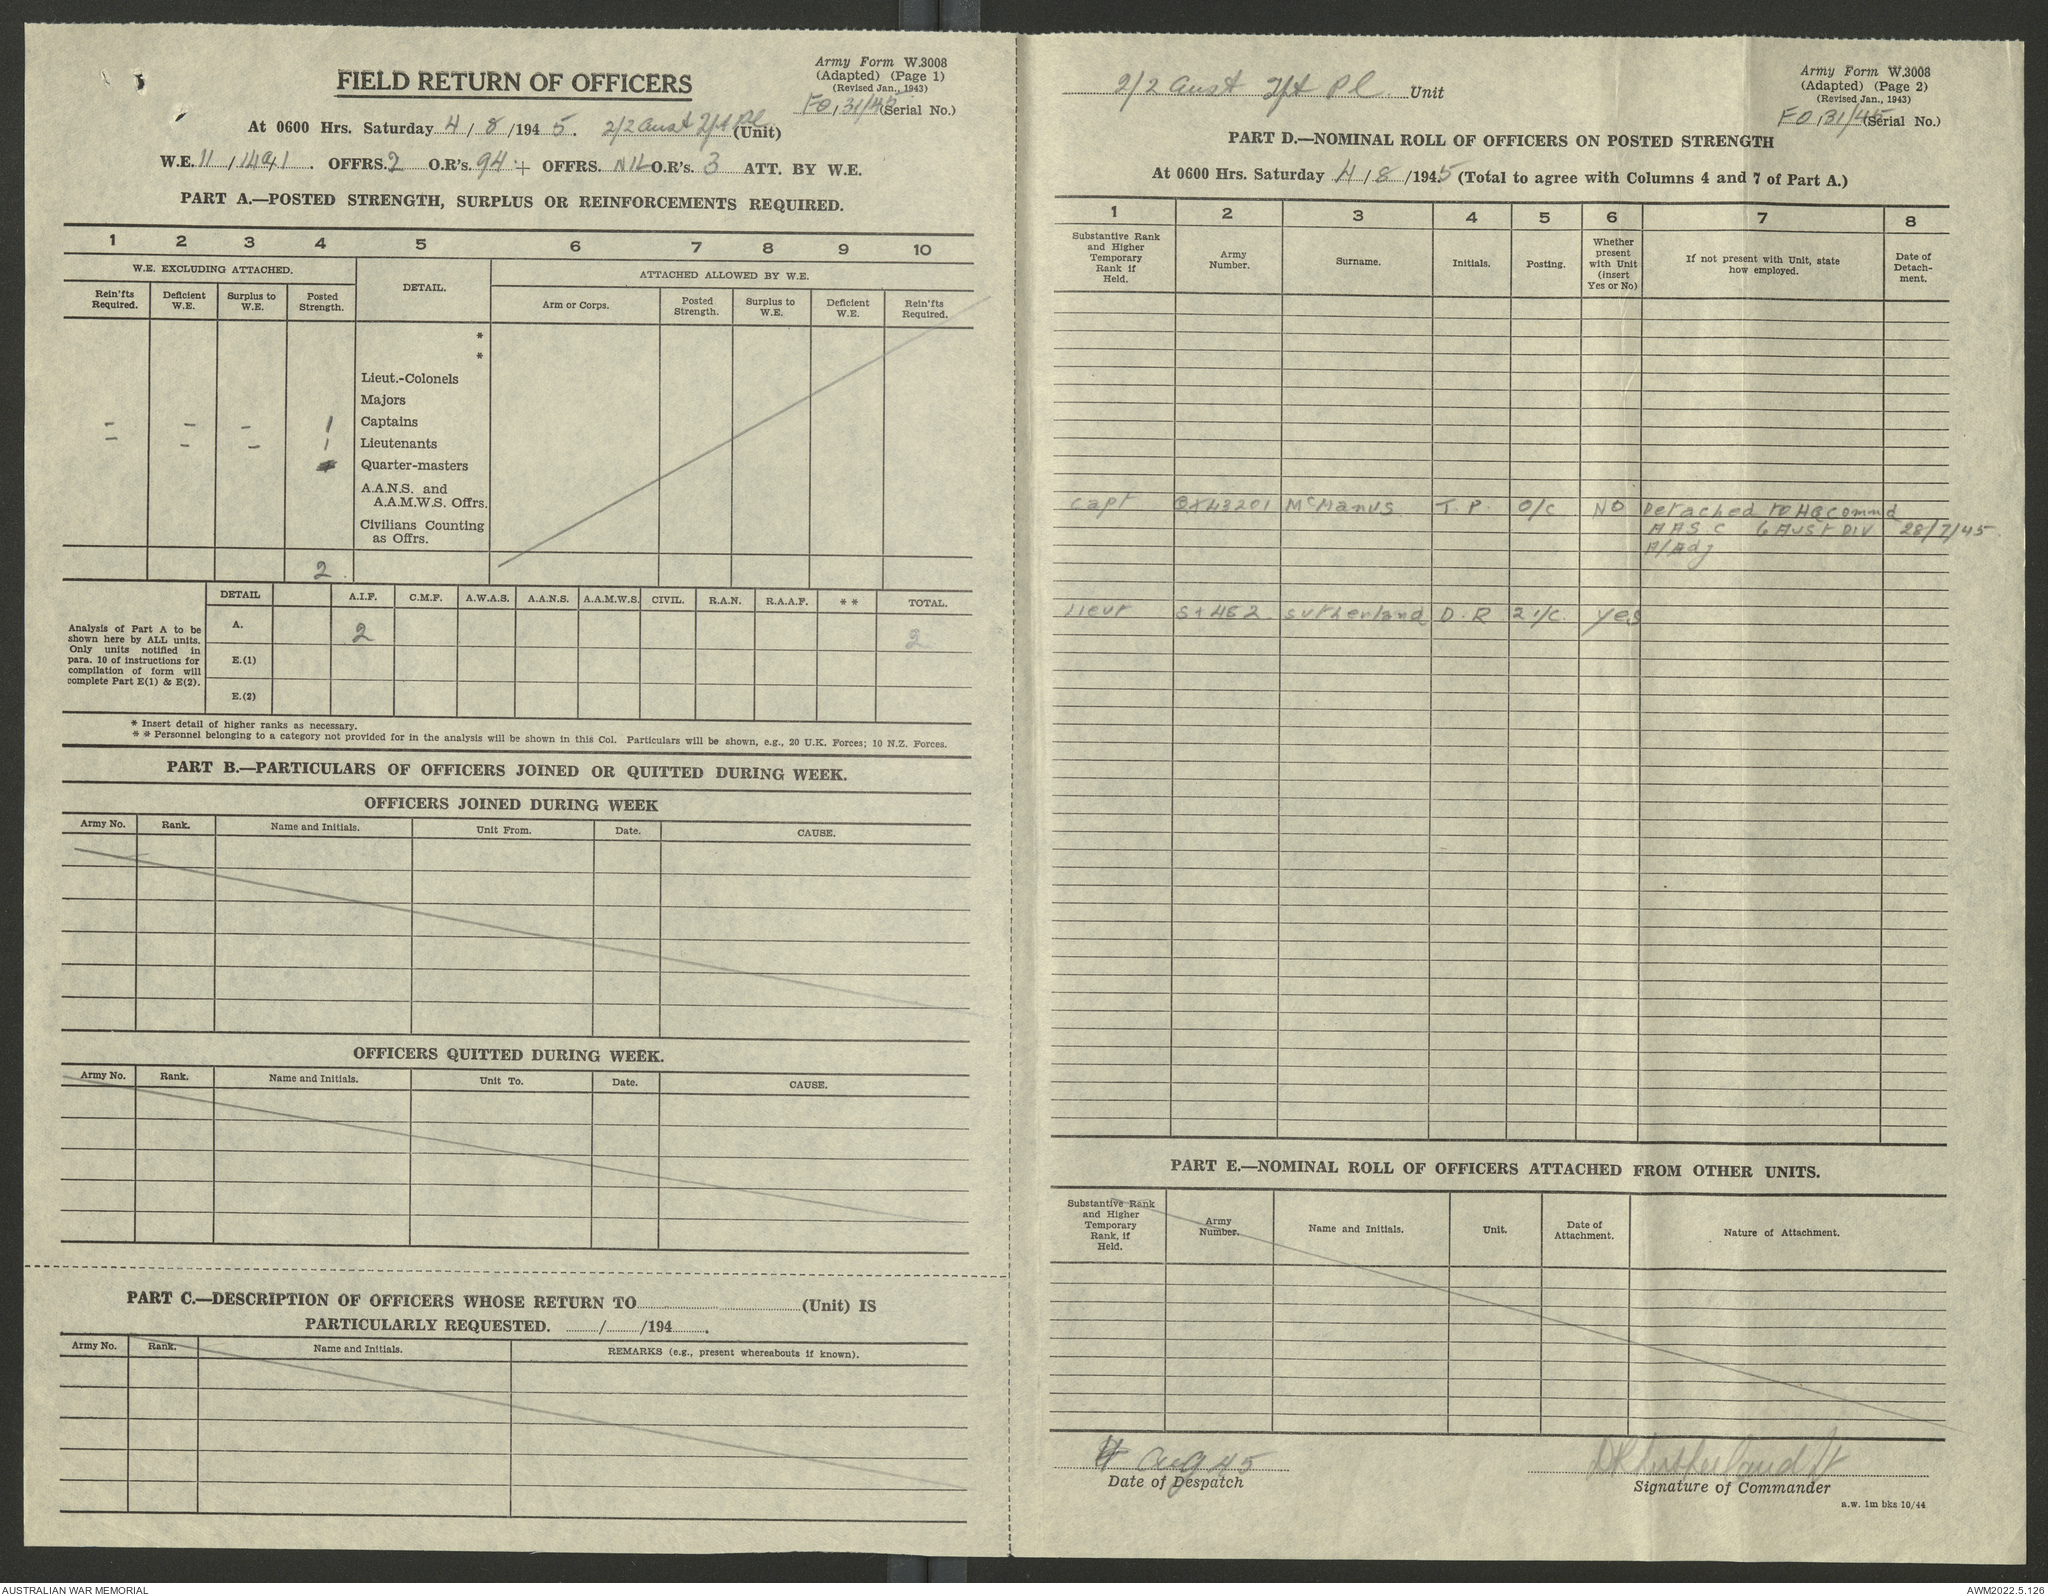 FIELD RETURN OF OFFICERS
Army Form W.3008
(Adapted) (Page 1)
(Revised Jan., 1943)
FO,31/45 (Serial No.)
At 0600 Hrs. Saturday 4/8/1945. 2/2 Aust Pl (Unit)
W.E. OFFRS. 2 O.R's. 94 + OFFRS. NIL O.R's. 3 ATT. BY W.E.
PART A.—POSTED STRENGTH, SURPLUS OR REINFORCEMENTS REQUIRED.
1 2 3 4 5 6 7 8 9 10
W.E. EXCLUDING ATTACHED. DETAIL. ATTACHED ALLOWED BY W.E.
Rein'fts Required. Deficient W.E. Surplus to W.E. Posted Strength. Arm or Corps. Posted Strength. Surplus to W.E. Deficient W.E. Rein'fts Required.
*
*
Lieut.-Colonels
Majors
- - - 1 Captains
- - - 1 Lieutenants
Quarter-masters
A.A.N.S. and
A.A.M.W.S. Offrs.
Civilians Counting
as Offrs.
2
Analysis of Part A to be shown here by ALL units. Only units notified in para. 10 of instructions for compilation of form will complete Part E(1) & E(2).
DETAIL A.I.F. C.M.F. A.W.A.S. A.A.N.S. A.A.M.W.S. CIVIL. R.A.N. R.A.A.F. * * TOTAL.
A. 2 2
E.(1)
E.(2)
* Insert detail of higher ranks as necessary.
* * Personnel belonging to a category not provided for in the analysis will be shown in this Col. Particulars will be shown, e.g., 20 U.K. Forces; 10 N.Z. Forces.
PART B.—PARTICULARS OF OFFICERS JOINED OR QUITTED DURING WEEK.
OFFICERS JOINED DURING WEEK
Army No. Rank. Name and Initials. Unit From. Date. CAUSE.
OFFICERS QUITTED DURING WEEK.
Army No. Rank. Name and Initials. Unit To. Date. CAUSE.
PART C.—DESCRIPTION OF OFFICERS WHOSE RETURN TO (Unit) IS
PARTICULARLY REQUESTED. / /194 .
Army No. Rank. Name and Initials. REMARKS (e.g., present whereabouts if known).
2/2 Aust Pl Unit
Army Form W.3008
(Adapted) (Page 2)
(Revised Jan., 1943)
FO,31/45 (Serial No.)
PART D.—NOMINAL ROLL OF OFFICERS ON POSTED STRENGTH
At 0600 Hrs. Saturday 4/8/1945 (Total to agree with Columns 4 and 7 of Part A.)
1 2 3 4 5 6 7 8
Substantive Rank and Higher Temporary Rank if Held. Army Number. Surname. Initials. Posting. Whether present with Unit (insert Yes or No) If not present with Unit, state how employed. Date of Detach-ment.
Capt QX43201 McManus J. P. O/C NO Detached to HQ Commd
AASC 6 Aust Div 28/7/45.
A/Adj
Lieut SX482 Sutherland D. R 2 I/C. Yes
PART E.—NOMINAL ROLL OF OFFICERS ATTACHED FROM OTHER UNITS.
Substantive Rank and Higher Temporary Rank, if Held. Army Number. Name and Initials. Unit. Date of Attachment. Nature of Attachment.
4 Aug 45
Date of Despatch
DR Sutherland Lt
Signature of Commander
a.w. 1m bks 10/44
AUSTRALIAN WAR MEMORIAL
AWM2022.5.126